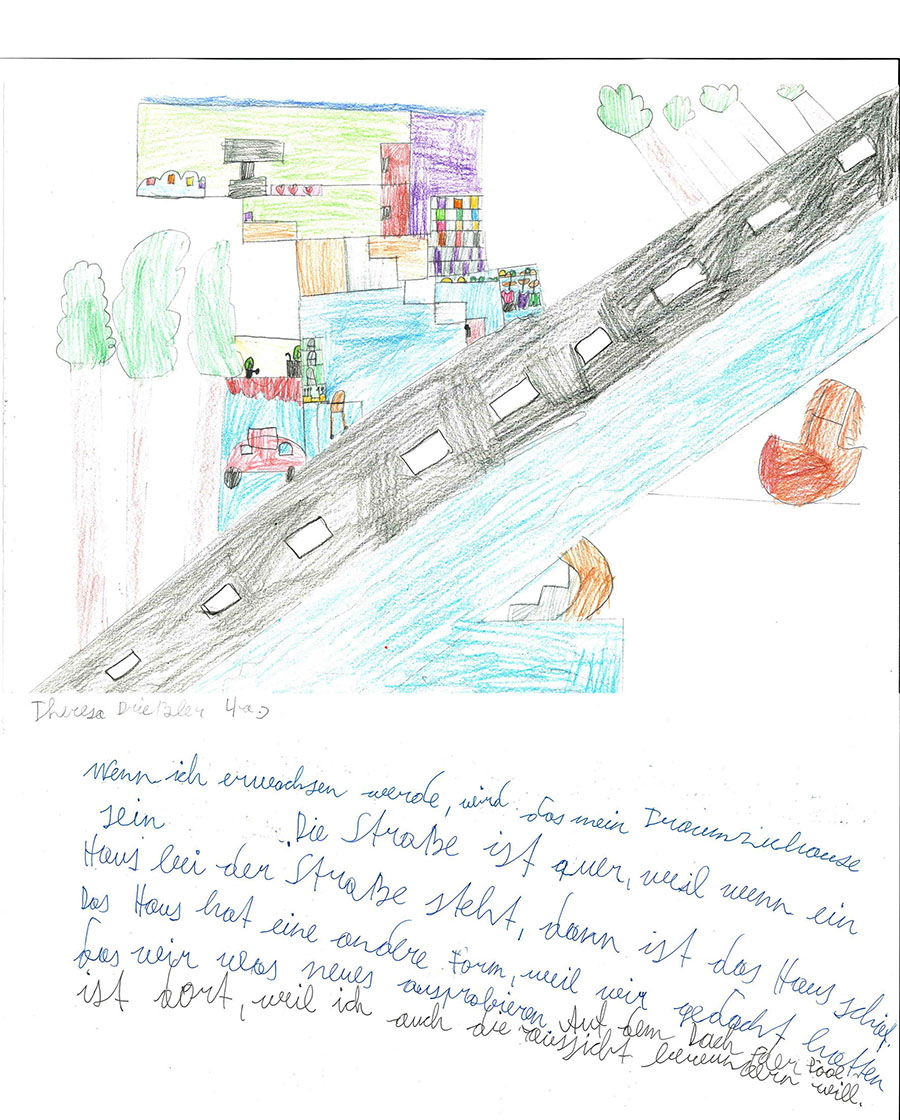 Theresa Drießler 4a
Wenn ich erwachsen werde, wird das mein Draumzuhause
sein .Die Straße ist quer, weil wenn ein
Haus bei der Straße steht, dann ist das Haus schief.
Das Haus hat eine andere Form, weil wir gedacht hatten
das wir was neues ausprobieren. Auf dem Dach der Pool
ist dort, weil ich auch die aussicht bewundern will.